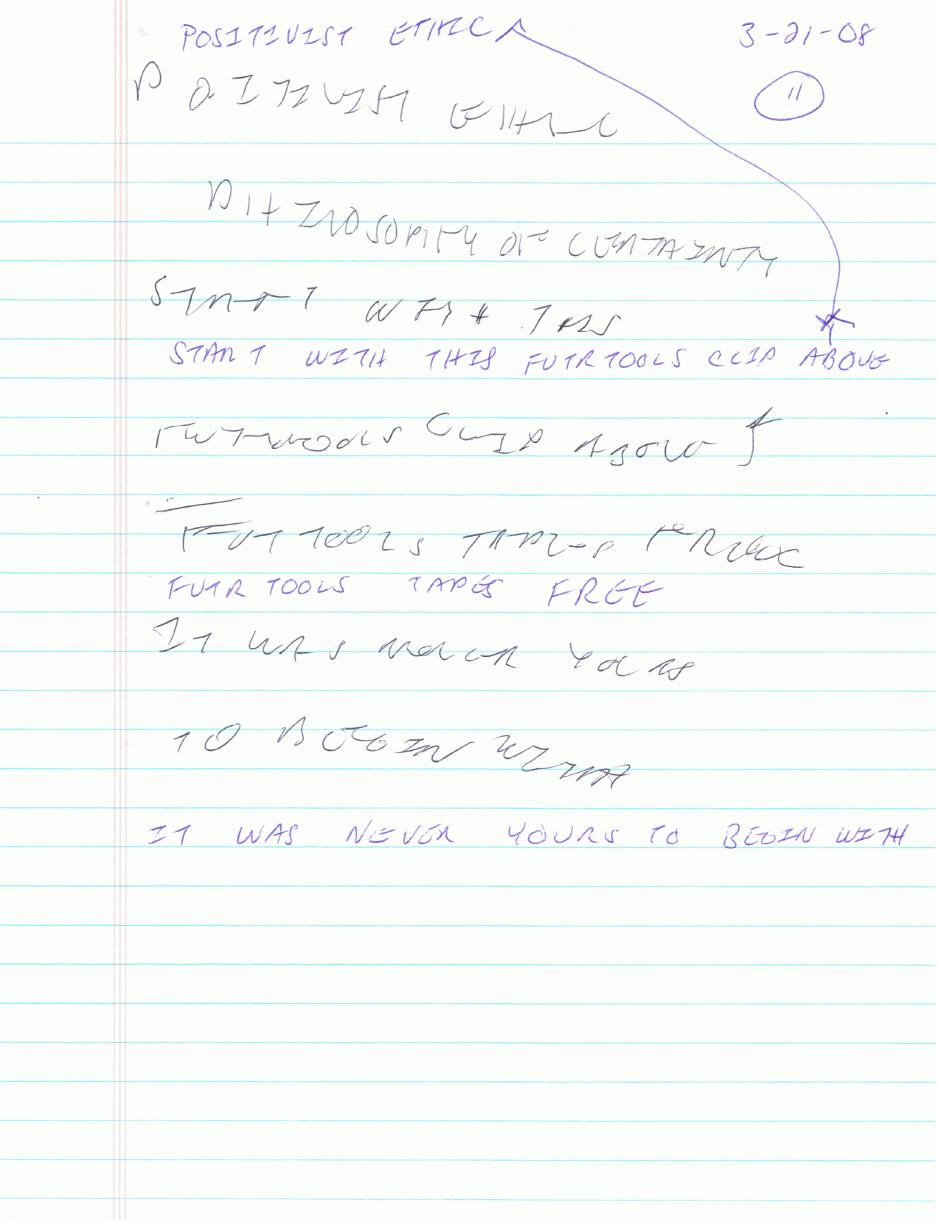 POSITIVIST ETHIC 3-21-08
POITIVIST ETHIC 11
PHILOSOPHY OF CERTAINTY
START WITH THIS
START WITH THIS FUTRTOOLS CLIP ABOVE
FUTRTOOLS CLIP ABOVE
FUTTOOLS TAPES FREE
FUTR TOOLS TAPES FREE
IT WAS NEVER YOURS
TO BEGIN WITH
IT WAS NEVER YOURS TO BEGIN WITH